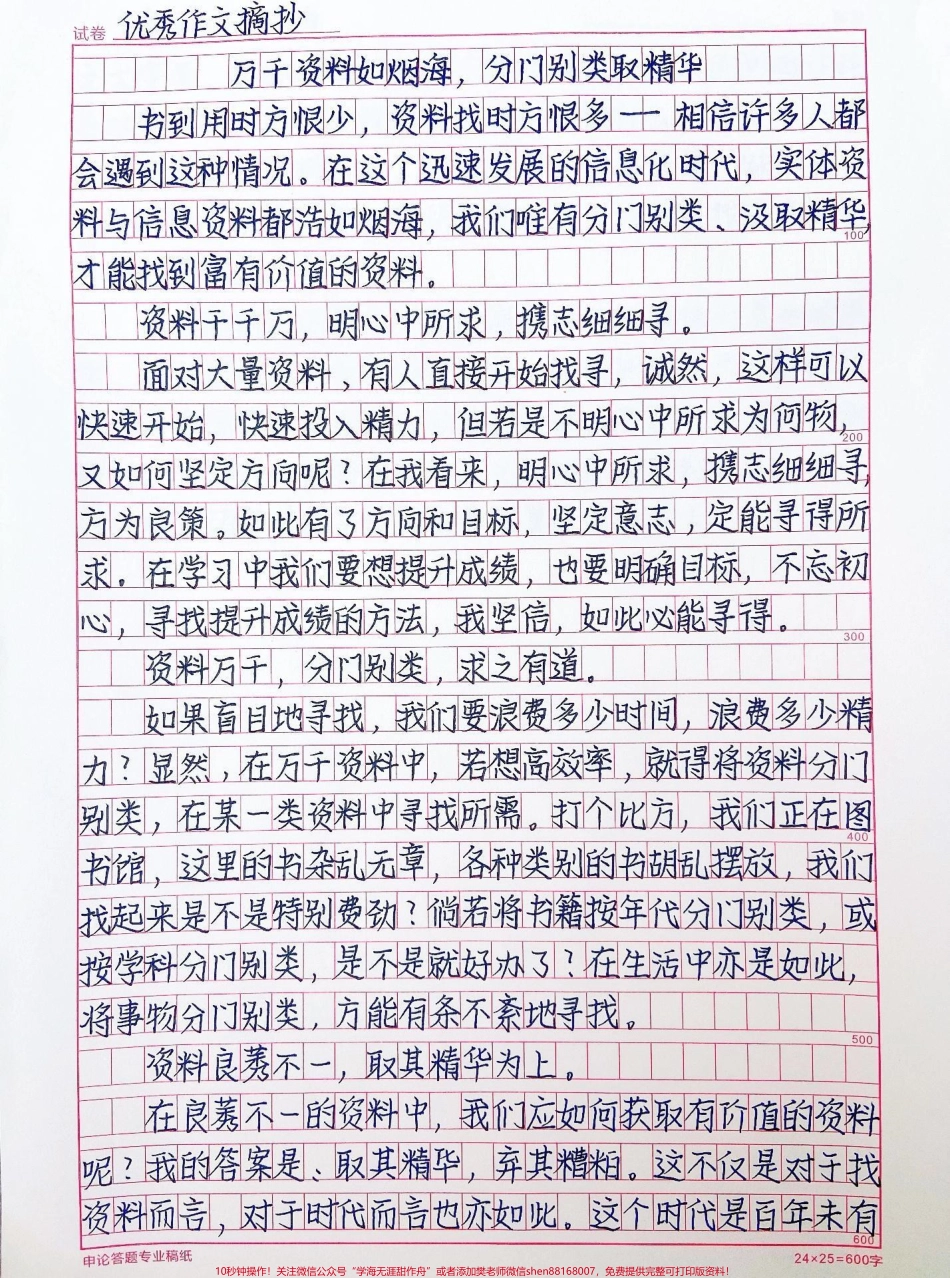 试卷 优秀作文摘抄
万千资料如烟海，分门别类取精华
书到用时方恨少，资料找时方恨多——相信许多人都
会遇到这种情况。在这个迅速发展的信息化时代，实体资
料与信息资料都浩如烟海，我们唯有分门别类、汲取精华，
100
才能找到富有价值的资料。
资料千千万，明心中所求，携志细细寻。
面对大量资料，有人直接开始找寻，诚然，这样可以
快速开始，快速投入精力，但若是不明心中所求为何物，
200
又如何坚定方向呢？在我看来，明心中所求，携志细细寻，
方为良策。如此有了方向和目标，坚定意志，定能寻得所
求。在学习中我们要想提升成绩，也要明确目标，不忘初
心，寻找提升成绩的方法，我坚信，如此必能寻得。
300
资料万千，分门别类，求之有道。
如果盲目地寻找，我们要浪费多少时间，浪费多少精
力？显然，在万千资料中，若想高效率，就得将资料分门
别类，在某一类资料中寻找所需。打个比方，我们正在图
400
书馆，这里的书杂乱无章，各种类别的书胡乱摆放，我们
找起来是不是特别费劲？倘若将书籍按年代分门别类，或
按学科分门别类，是不是就好办了？在生活中亦是如此，
将事物分门别类，方能有条不紊地寻找。
500
资料良莠不一，取其精华为上。
在良莠不一的资料中，我们应如何获取有价值的资料
呢？我的答案是、取其精华，弃其糟粕。这不仅是对于找
资料而言，对于时代而言也亦如此。这个时代是百年未有
600
申论答题专业稿纸 24×25=600字
10秒钟操作！关注微信公众号“学海无涯甜作舟”或者添加樊老师微信shen88168007，免费提供完整可打印版资料！